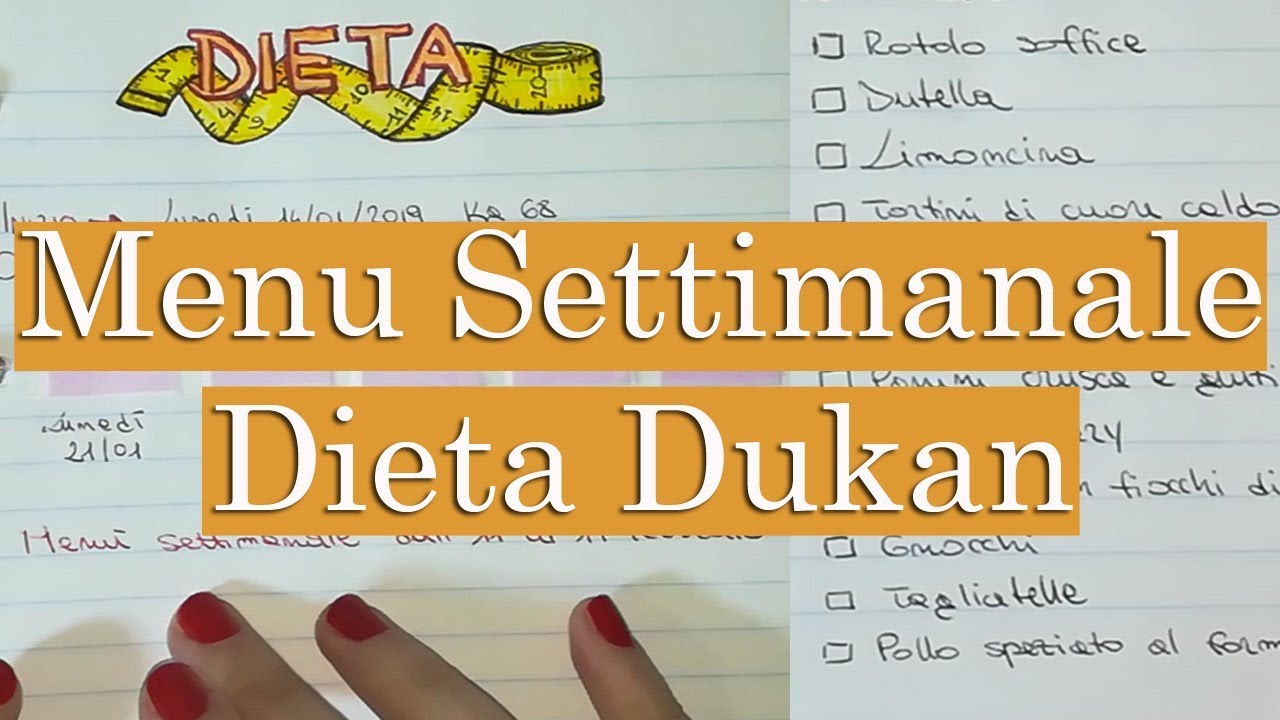 DIETA
4
6
10
20
Lunedì 14/01/2019 Kg 68
Menu Settimanale
Dieta Dukan
Lunedì
21/01
Menù settimanale
Rotolo soffice
Dutella
Limoncina
Tortini di cuore caldo
Panini crusca e gluti
fiocchi di
Gnocchi
Tagliatelle
Pollo speziato al form